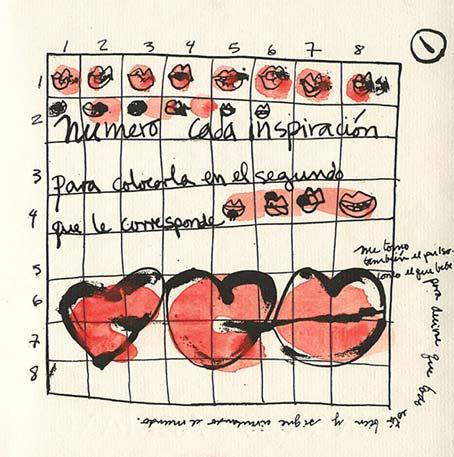 1 2 3 4 5 6 7 8
1
1
2
Numero cada inspiración
3
para colocarla en el segundo
4
que le corresponde
5
6
7
8
me tomo
también el pulso
como el que bebe
para decirme que
bien y sigue circulando el mundo.